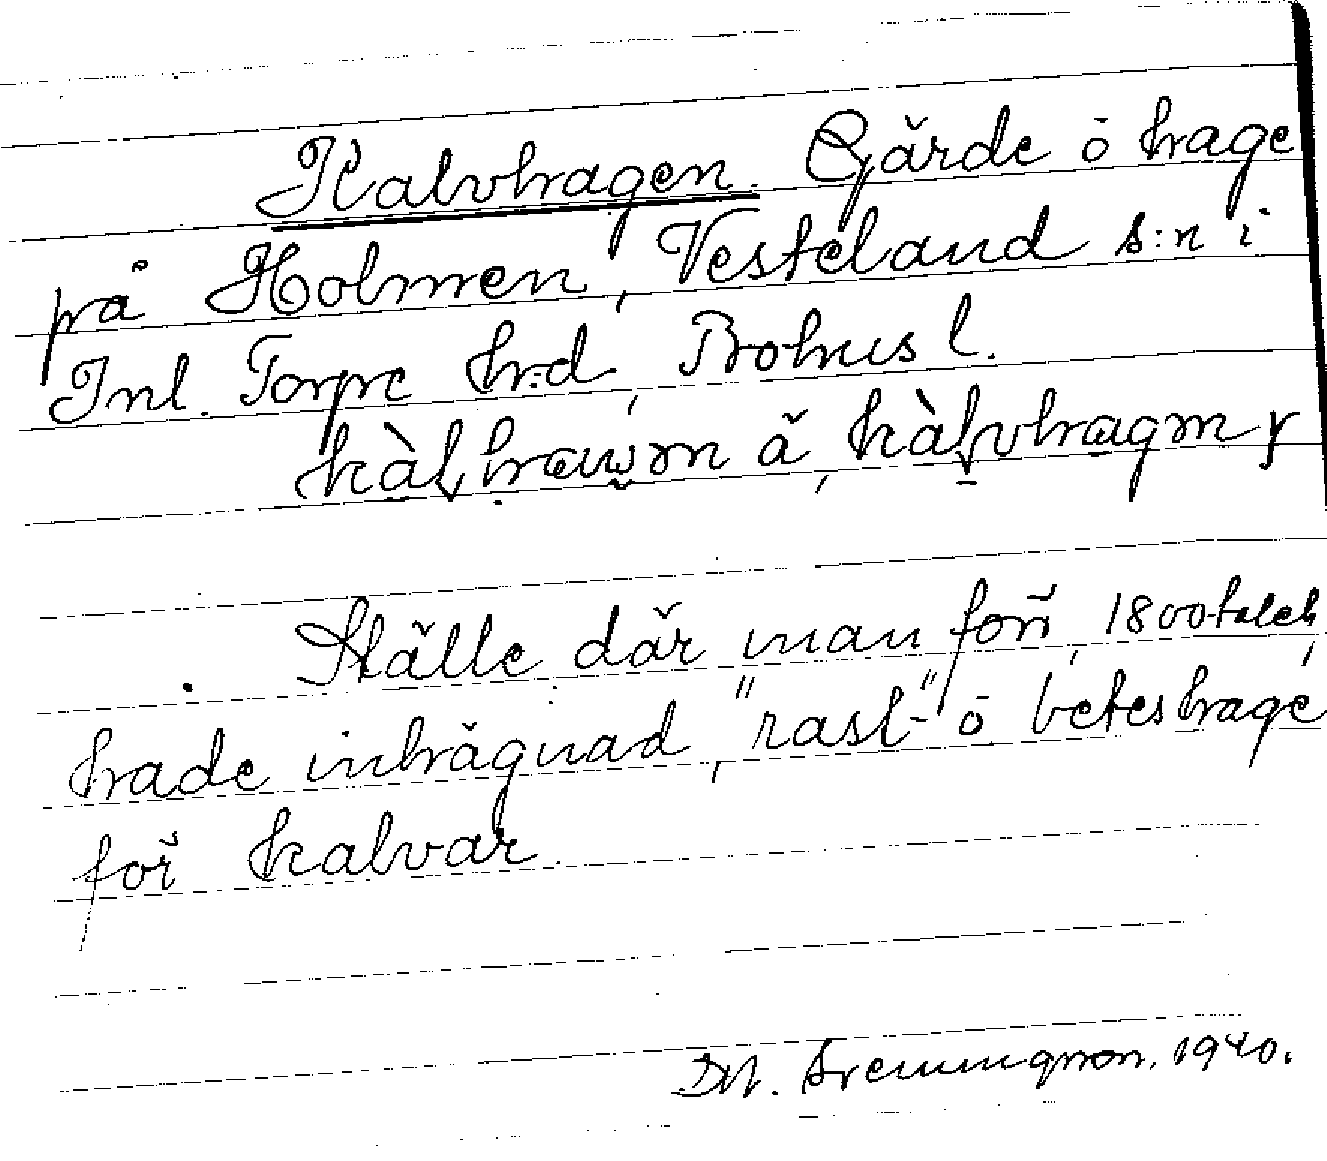 Kalvhagen. Gärde ö hage
på Holmen, Vesteland s:n i
Inl. Torpe hr:d, Bohusl.
Ställe där man förr, 1800-talet,
hade inhägnad, "rast-" ö beteshage
för kalvar.
1940.